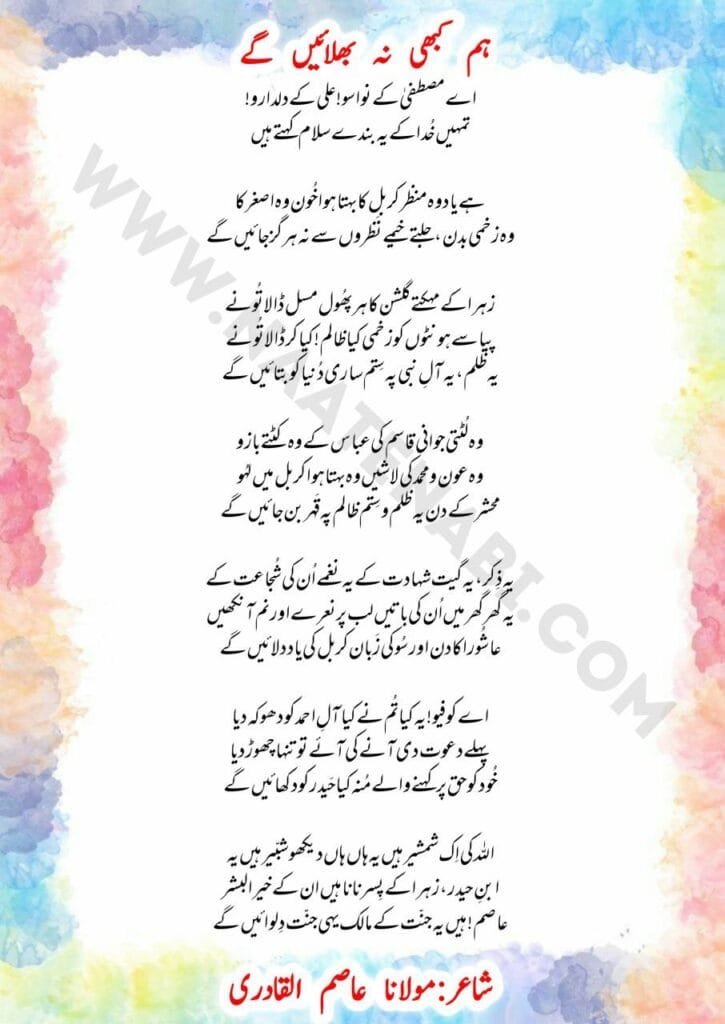 ہم کبھی نہ بھلائیں گے
اے مصطفیٰ کے نواسو! علی کے دلدارو!
تمہیں خُدا کے یہ بندے سلام کہتے ہیں
ہے یاد وہ منظر کربل کا بہتا ہوا خُون وہ اصغر کا
وہ زخمی بدن، جلتے خیمے نظروں سے نہ ہرگز جائیں گے
زہرا کے مہکتے گلشن کا ہر پھُول مسل ڈالا تُو نے
پیاسے ہونٹوں کو زخمی کیا ظالم! کیا کر ڈالا تُو نے
یہ ظلم، یہ آلِ نبی پہ سِتم ساری دُنیا کو بتائیں گے
وہ لُٹتی جوانی قاسم کی عباس کے وہ کٹتے بازو
وہ عون و محمد کی لاشیں وہ بہتا ہوا کربل میں لہُو
محشر کے دن یہ ظلم و سِتم ظالم پہ قَہر بن جائیں گے
یہ ذِکر، یہ گیت شہادت کے یہ نغمے اُن کی شُجاعت کے
یہ گھر گھر میں اُن کی باتیں لب پر نعرے اور نم آنکھیں
عاشُورا کا دن اور سُوکی زَبان کربل کی یاد دلائیں گے
اے کوفیو! یہ کیا تُم نے کیا آلِ احمد کو دھوکہ دیا
پہلے دعوت دی آنے کی آئے تو تنہا چھوڑ دیا
خُود کو حق پر کہنے والے مُنہ کیا حَیدر کو دکھائیں گے
اللہ کی اِک شمشیر ہیں یہ ہاں ہاں دیکھو شبّیر ہیں یہ
ابنِ حیدر، زہرا کے پِسر نانا ہیں ان کے خیر البشر
عاصم! ہیں یہ جنّت کے مالک یہی جنّت دِلوائیں گے
شاعر: مولانا عاصم القادری
WWW.NAATENABI.COM